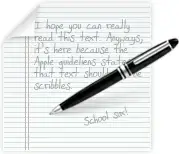 I hope you can really
read this text. Anyways,
it's here because the
Apple guideliens state
that text should be
scribbles.
School son!